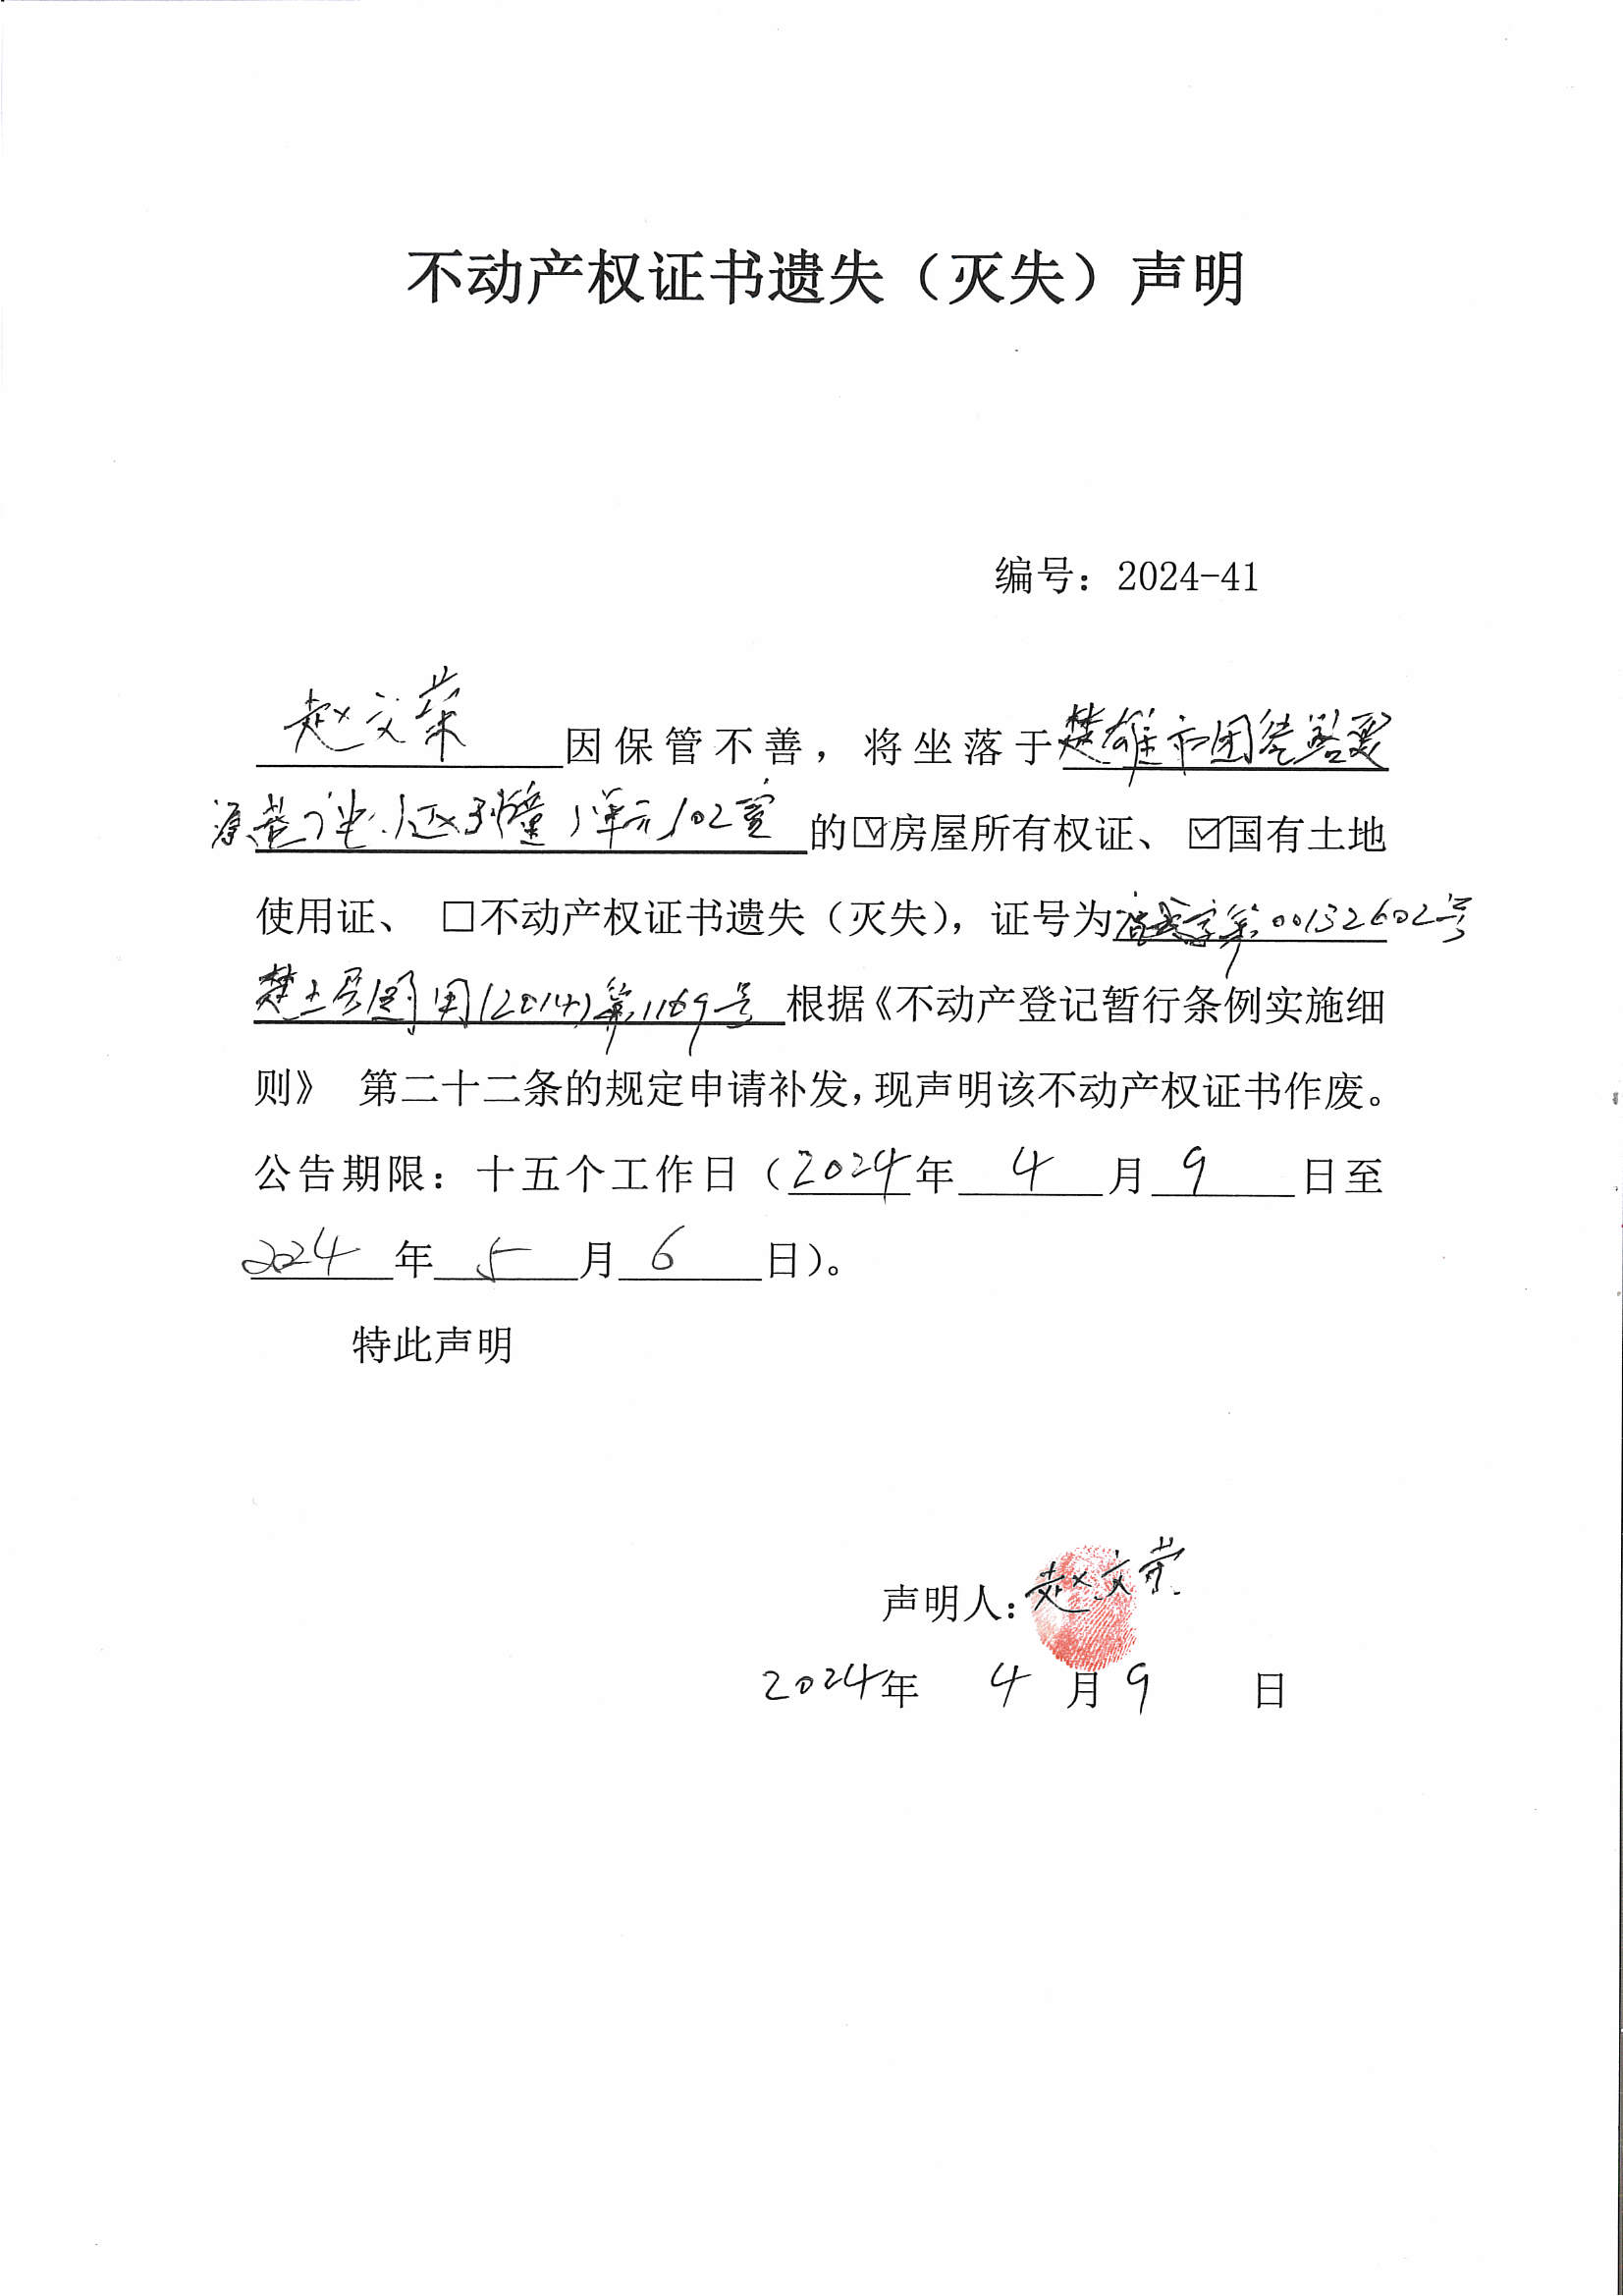 不动产权证书遗失（灭失）声明
编号：2024-41
赵文荣因保管不善，将坐落于楚雄市团结路
1单元102室的☑房屋所有权证、☑国有土地
使用证、□不动产权证书遗失（灭失），证号为字第00132602号
楚国用(2014)第1169号根据《不动产登记暂行条例实施细
则》 第二十二条的规定申请补发，现声明该不动产权证书作废。
公告期限：十五个工作日（2024年4月9日至
2024年5月6日）。
特此声明
声明人：赵文荣
2024年4月9日